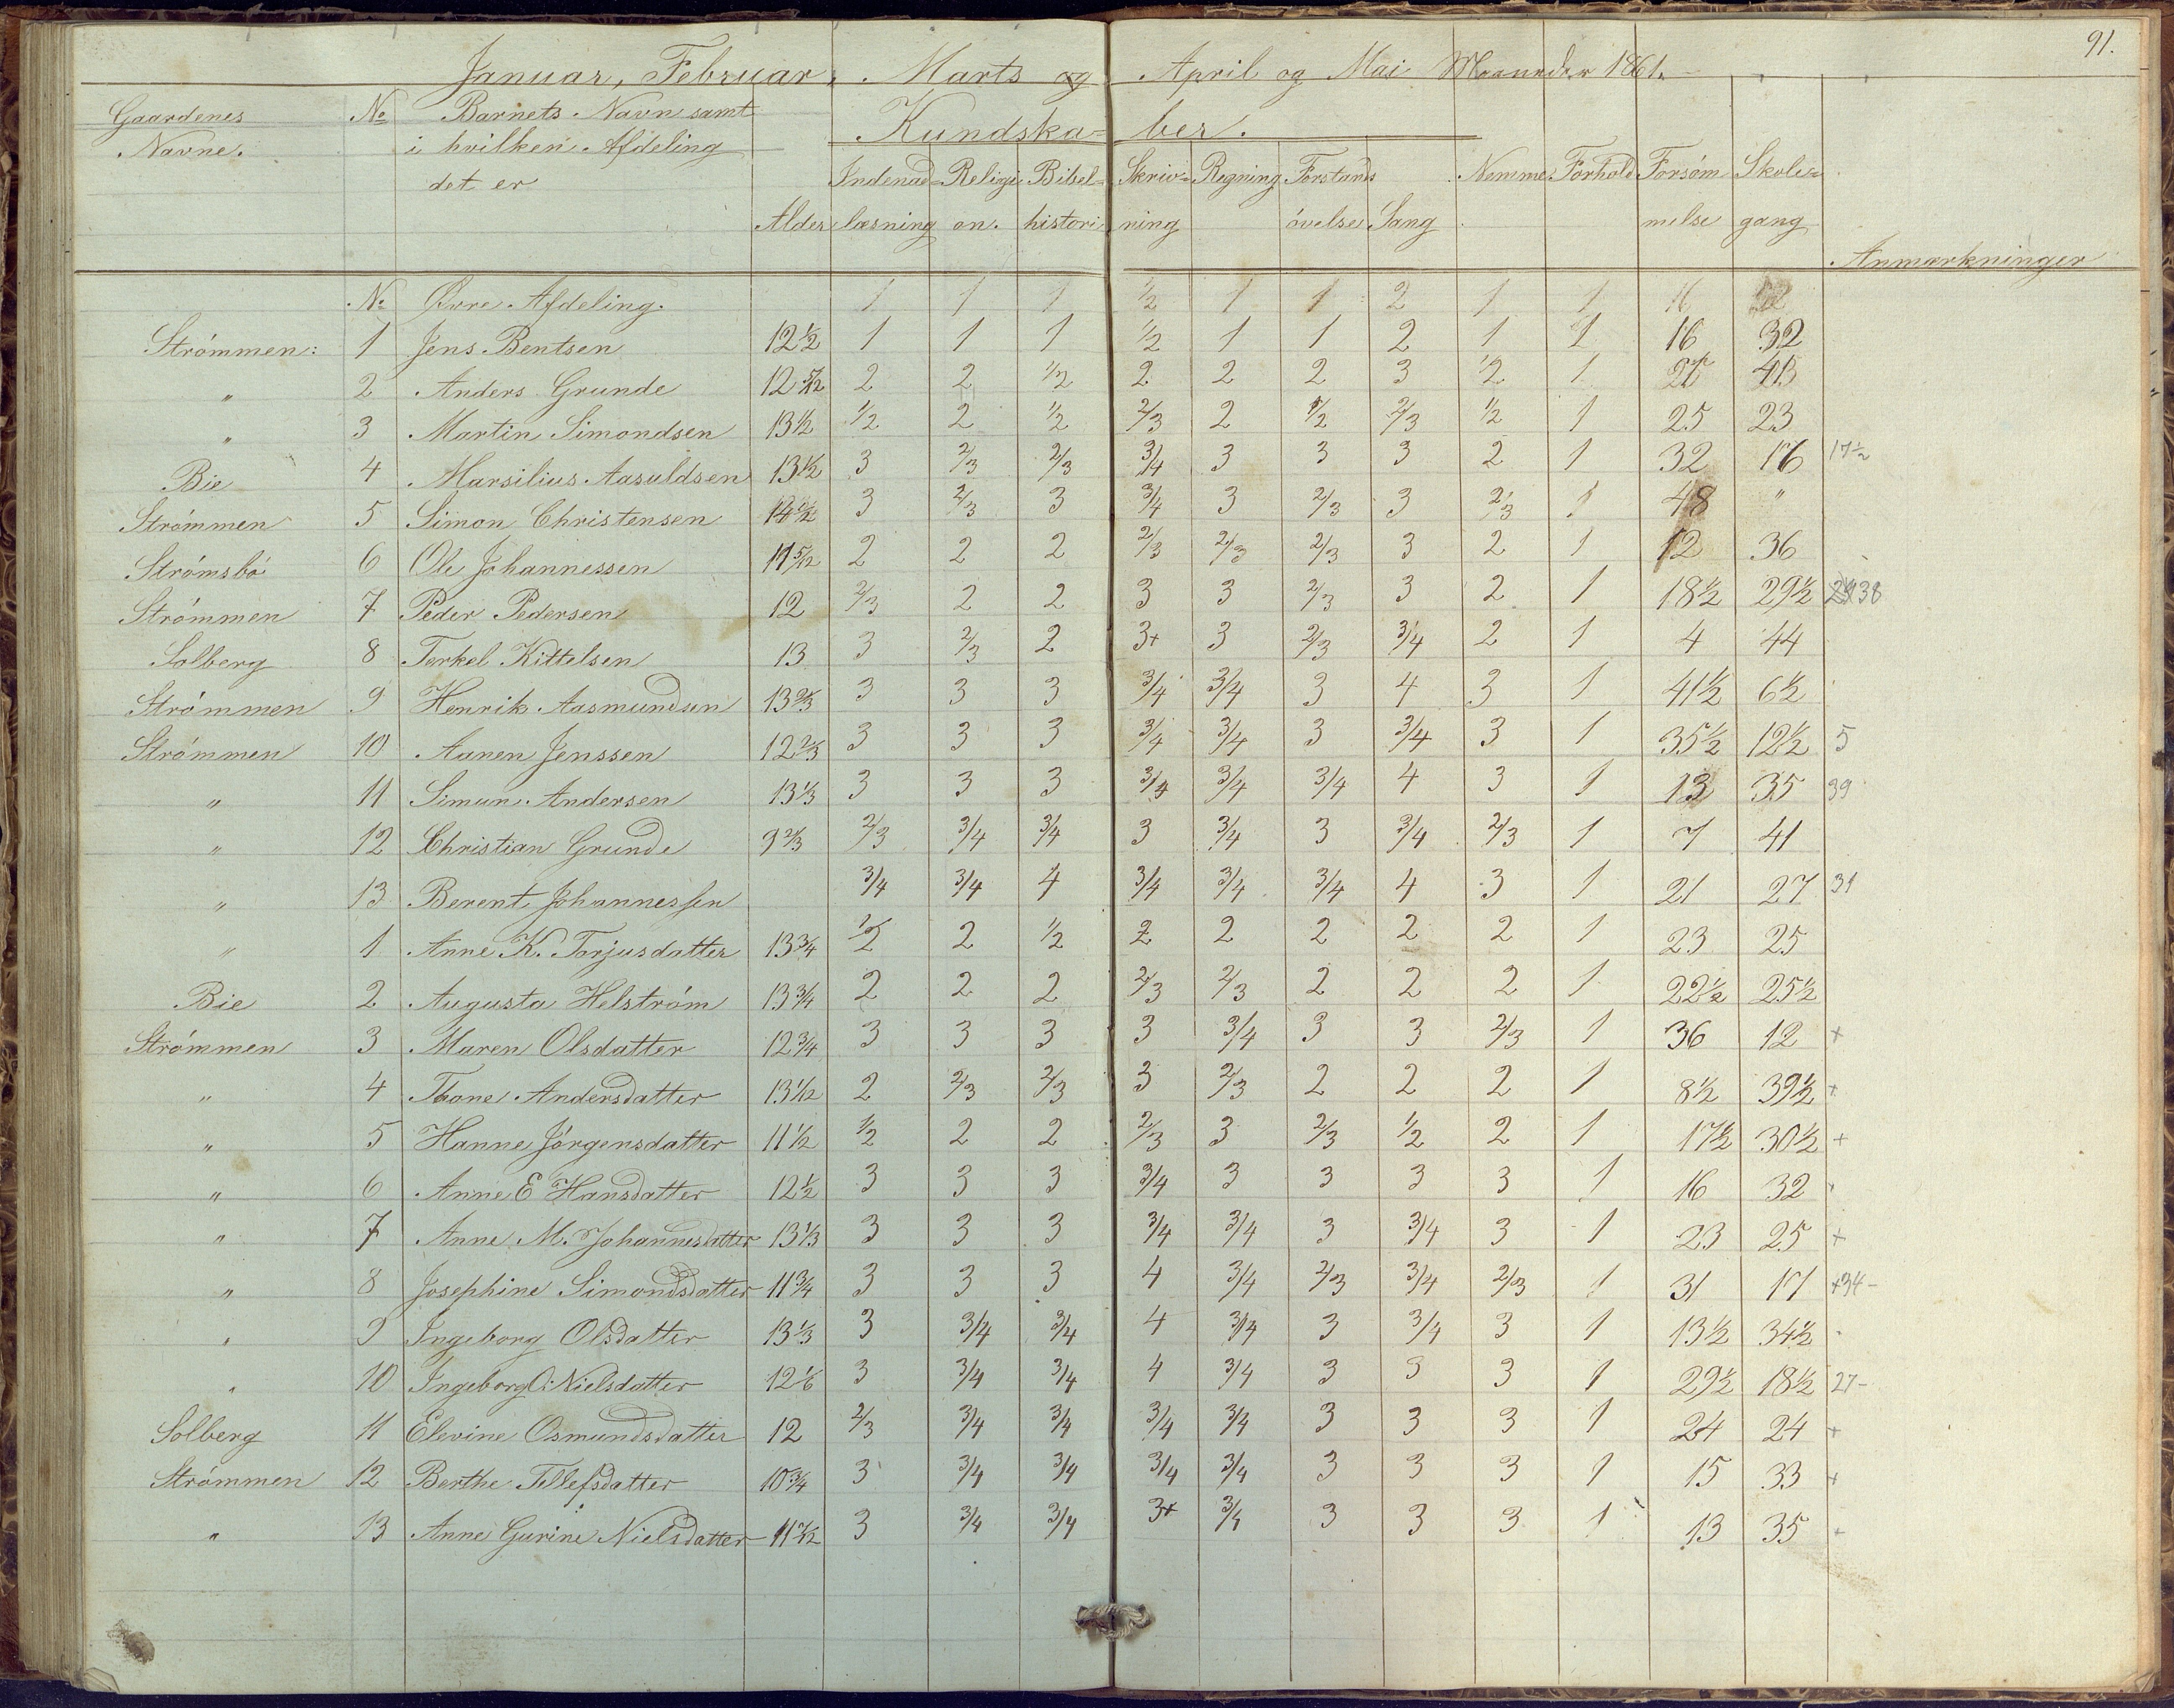 91.
Januar, Februar, Marts og April og Mai Maaneder 1861.
Gaardenes No Barnets Navn samt Kundska= ber.
Navne. i hvilken Afdeling
det er Indenad= Religi Bibel= Skriv= Regning Forstands Nemme Forhold Forsøm Skole=
Alder læsning on. histori ning øvelse Sang melse gang
Anmærkninger
No Øvre Afdeling. 1 1 1 1/2 1 1 2 1 1 16
Strømmen: 1 Jens Bentsen 12 1/2 1 1 1 1/2 1 1 2 1 1 16 32
" 2 Anders Grunde 12 5/12 2 2 1/2 2 2 2 3 1/2 1
" 3 Martin Simondsen 13 1/2 1/2 2 1/2 2/3 2 1/2 2/3 1/2 1 25 23
Bie 4 Marsilius Aasuldsen 13 1/2 3 2/3 2/3 3/4 3 3 3 2 1 32 16 17 1/2
Strømmen 5 Simon Christensen 14 1/2 3 2/3 3 3/4 3 2/3 3 2/3 1 48 "
Strømsbø 6 Ole Johannessen 11 5/12 2 2 2 2/3 2/3 2/3 3 2 1 12 36
Strømmen 7 Peder Pedersen 12 2/3 2 2 3 3 2/3 3 2 1 18 1/2 29 1/2 38
Solberg 8 Terkel Kittelsen 13 3 2/3 2 3+ 3 2/3 3/4 2 1 4 44
Strømmen 9 Henrik Aasmundsen 13 2/3 3 3 3 3/4 3/4 3 4 3 1 41 1/2 6 1/2
Strømmen 10 Aanen Jenssen 12 2/3 3 3 3 3/4 3/4 3 3/4 3 1 35 1/2 12 1/2 5
" 11 Simun Andersen 13 1/3 3 3 3 3/4 3/4 3/4 4 3 1 13 35 39
" 12 Christian Grunde 9 2/3 2/3 3/4 3/4 3 3/4 3 3/4 2/3 1 7 41
" 13 Berent Johannessen 3/4 3/4 4 3/4 3/4 3/4 4 3 1 21 27 31
" 1 Anne K. Torjusdatter 13 3/4 1/2 2 1/2 2 2 2 2 2 1 23 25
Bie 2 Augusta Helstrøm 13 3/4 2 2 2 2/3 2/3 2 2 2 1 22 1/2 25 1/2
Strømmen 3 Maren Olsdatter 12 3/4 3 3 3 3 3/4 3 3 2/3 1 36 12 +
" 4 Thone Andersdatter 13 1/12 2 2/3 2/3 3 2/3 2 2 2 1 8 1/2 39 1/2 +
" 5 Hanne Jørgensdatter 11 1/2 1/2 2 2 2/3 3 2/3 1/2 2 1 17 1/2 30 1/2 +
" 6 Anne E Hansdatter 12 1/2 3 3 3 3/4 3 3 3 3 1 16 32
" 7 Anne M. Johannesdatter 13 1/3 3 3 3 3/4 3/4 3 3/4 3 1 23 25 +
" 8 Josephine Simondsdatter 11 3/4 3 3 3 4 3/4 2/3 3/4 2/3 1 31 17 +34-
" 9 Ingeborg Olsdatter 13 1/3 3 3/4 3/4 4 3/4 3 3/4 3 1 13 1/2 34 1/2
" 10 Ingeborg O. Nielsdatter 12 1/6 3 3/4 3/4 4 3/4 3 3 3 1 29 1/2 18 1/2 27-
Solberg 11 Elevine Osmundsdatter 12 2/3 3/4 3/4 3/4 3/4 3 3 3 1 24 24 +
Strømmen 12 Berthe Tellefsdatter 10 3/4 3 3/4 3/4 3/4 3/4 3 3 3 1 15 33 +
" 13 Anne Gurine Nielsdatter 3 3/4 3/4 3+ 3/4 3 3 3 1 13 35 +